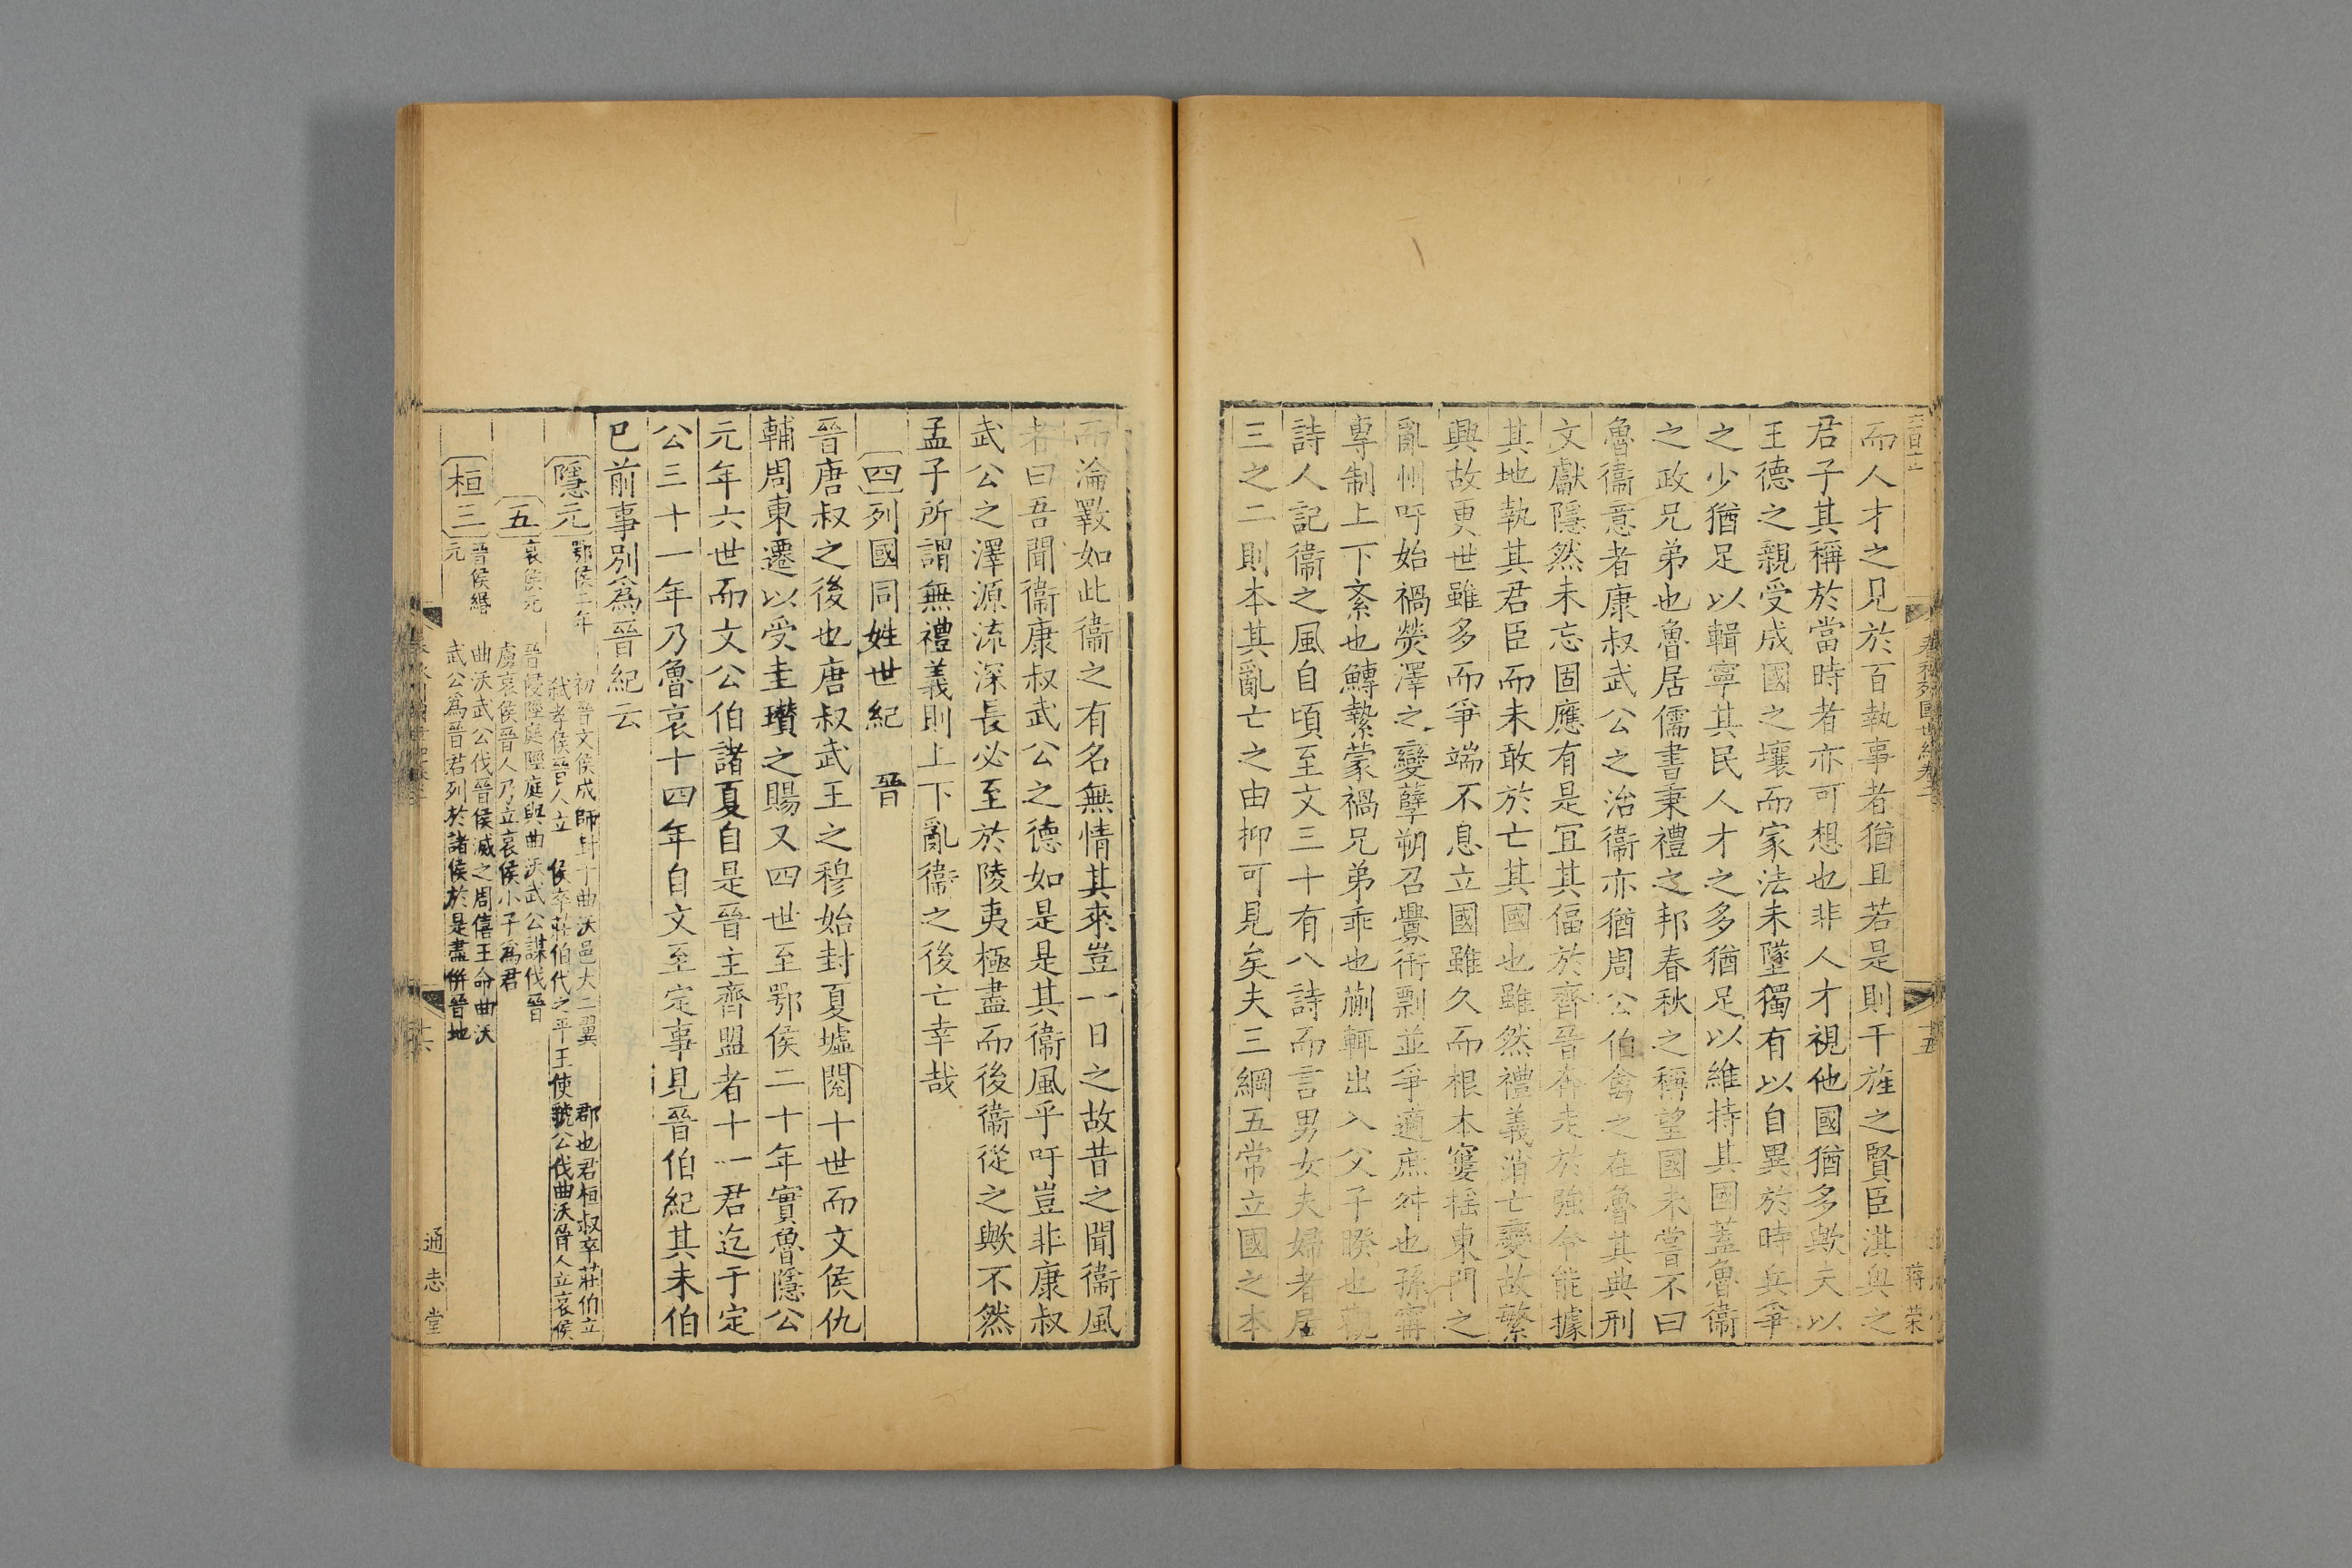 而人才之見於百執事者猶且若是則干旄之賢臣淇奧之
君子其稱於當時者亦可想也非人才視他國猶多歟夫以
王德之親受成國之壤而家法未墜獨有以自異於時兵爭
之少猶足以輯寧其民人才之多猶足以維持其國蓋魯衞
之政兄弟也魯居儒書秉禮之邦春秋之稱望國未嘗不曰
魯衞意者康叔武公之治衞亦猶周公伯禽之在魯其典刑
文獻隱然未忘固應有是宜其偪於齊晉奔走於強令能據
其地執其君臣而未敢於亡其國也雖然禮義消亡變故繁
興故更世雖多而爭端不息立國雖久而根本寠搖東門之
亂州吁始禍熒澤之變孽朔召釁衎剽並爭適庶舛也孫甯
專制上下紊也鱄縶蒙禍兄弟乖也蒯輒出入父子睽也觀
詩人記衞之風自頃至文三十有八詩而言男女夫婦者居
三之二則本其亂亡之由抑可見矣夫三綱五常立國之本
春秋列國世紀卷二
十五
蔣榮
而淪斁如此衞之有名無情其來豈一日之故昔之聞衞風
者曰吾聞衞康叔武公之德如是是其衞風乎吁豈非康叔
武公之澤源流深長必至於陵夷極盡而後衞從之歟不然
孟子所謂無禮義則上下亂衞之後亡幸哉
四列國同姓世紀 晉
晉唐叔之後也唐叔武王之穆始封夏墟閱十世而文侯仇
輔周東遷以受圭瓚之賜又四世至鄂侯二十年實魯隱公
元年六世而文公伯諸夏自是晉主齊盟者十一君迄于定
公三十一年乃魯哀十四年自文至定事見晉伯紀其未伯
已前事別爲晉紀云
隱元 鄂侯二年 初晉文侯成師封于曲沃邑大二翼 郡也君桓叔卒莊伯立
弒孝侯晉人立 侯卒莊伯代之平王使虢公伐曲沃晉人立哀侯
五 哀侯元 晉侵陘庭陘庭與曲沃武公謀伐晉
虜哀侯晉人乃立哀侯小子爲君
桓三 晉侯緡元 曲沃武公伐晉侯滅之周僖王命曲沃
武公爲晉君列於諸侯於是盡併晉地
十六
通志堂